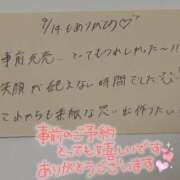 9/14もありがとう♡
事前完売、とってもうれしかった〜!!
笑顔が絶えない時間でした
これからも素敵な思い出作りたい
事前のご予約
とっても嬉しいです
ありがとうございます